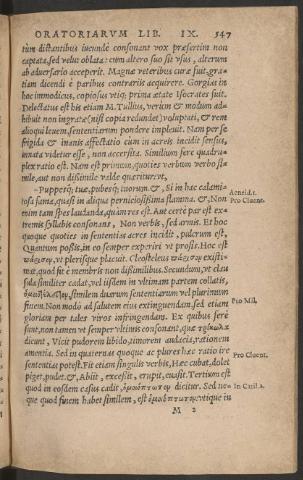 ORATORIARVM LIB. IX. 547
tium distantibus iucundè consonant vox præsertim non
captata, sed velut oblata: cum altero suo sit vsus, alterum
ab aduersario acceperit. Magnæ veteribus curæ fuit, gra-
tiam dicendi è paribus contrarijs acquirere. Gorgias in
hoc immodicus, copiosus vtiq; prima ætate Isocrates fuit.
Delectatus est his etiam M. Tullius, verùm & modum ad-
hibuit non ingratæ (nisi copia redundet) voluptati, & rem
alioqui leuem, sententiarum pondere impleuit. Nam per se
frigida & inanis affectatio cum in acreis incidit sensus,
innata videtur esse, non accersita. Similium ferè quadru-
plex ratio est. Nam est primùm, quoties verbum verbo si-
mile, aut non dissimile valdè quæritur, vt,
-Puppesq; tuæ, pubesq; tuorum. &, Si in hac calami-
Aeneid. 1.
tosa fama, quasi in aliqua perniciosissima flamma. &, Non
Pro Cluent.
enim tam spes laudanda, quàm res est. Aut certè par est ex-
tremis syllabis consonans, Non verbis, sed armis. Et hoc
quoque quoties in sententias acres incidit, pulcrum est,
Quantum possis, in eo semper experiri vt prosit. Hoc est
πάρισον, vt plerisque placuit. Cleosteleus πάρισον existi-
mat, quod sit è membris non dissimilibus. Secundum, vt clau-
sula similiter cadat, vel ijsdem in vltimam partem collatis,
ὁμοιοτέλευτον, similem duarum sententiarum vel plurimum
finem. Non modò ad salutem eius extinguendam, sed etiam
Pro Mil.
gloriam per tales viros infringendam. Ex quibus ferè
sunt, non tamen vt semper vltimis consonent, quæ τρίκωλα
dicunt, Vicit pudorem libido, timorem audacia, rationem
amentia. Sed in quaternas quoque ac plures hæc ratio ire
Pro Cluent.
sententias potest. Fit etiam singulis verbis, Hæc cubat, dolet
piget, pudet. &, Abijt, excessit, erupit, euasit. Tertium est
quod in eosdem casus cadit, ὁμοιόπτωτον dicitur. Sed ne-
In Catil. 2.
que quod finem habet similem, est ὁμοιόπτωτον, vtique in
M 2